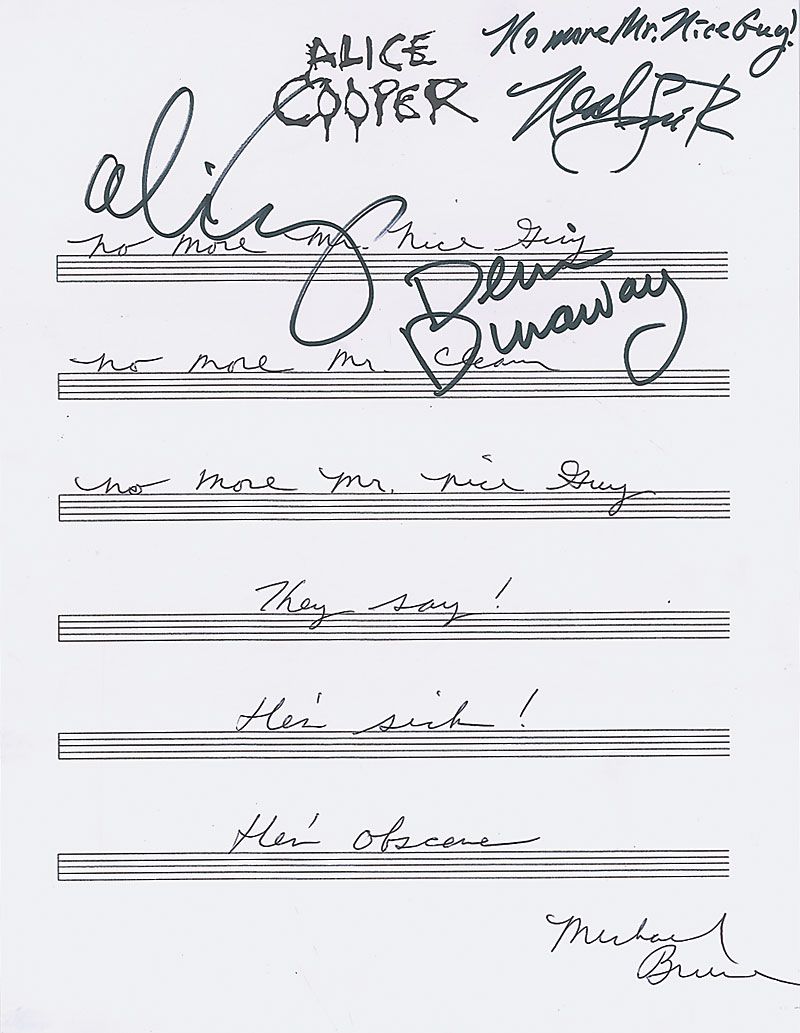 ALICE
COOPER
No more Mr. Nice Guy!
Neal Smith
Alice
No more Mr. Nice Guy
Dennis
Dunaway
No more Mr. Clean
No more Mr. Nice Guy
They say!
He's sick!
He's obscene
Michael
Bruce